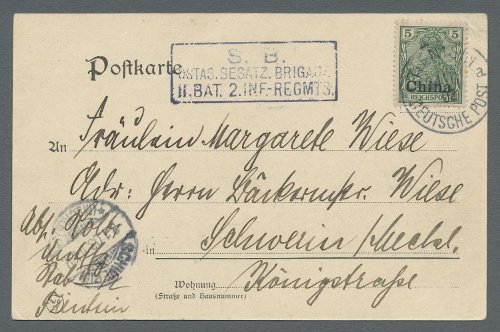 S. B.
OSTAS. BESATZ. BRIGADE
II. BAT. 2. INF.-REGMTS.
5 5
REICHSPOST
China
DEUTSCHE POST
Postkarte
An Fräulein Margarete Wiese
Adr: Herrn Bäckermstr. Wiese
in Schwerin /Meckl.
Wohnung Königstraße
(Straße und Hausnummer)
Abs.
Stab
Tientsin